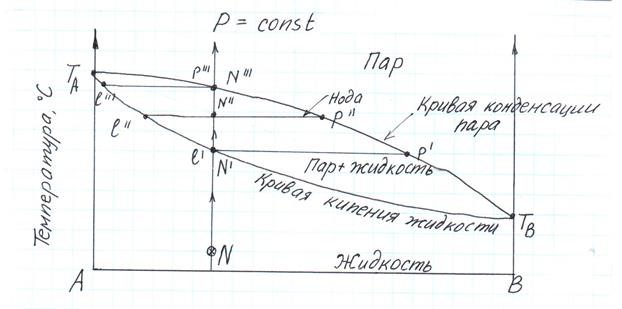 P = const
Пар
T_A
P'''
N'''
ℓ'''
N''
Нода
Кривая конденсации
пара
ℓ''
P''
ℓ'
N'
P'
Пар+жидкость
Кривая кипения жидкости
T_B
Температура, °C
N
Жидкость
A
B